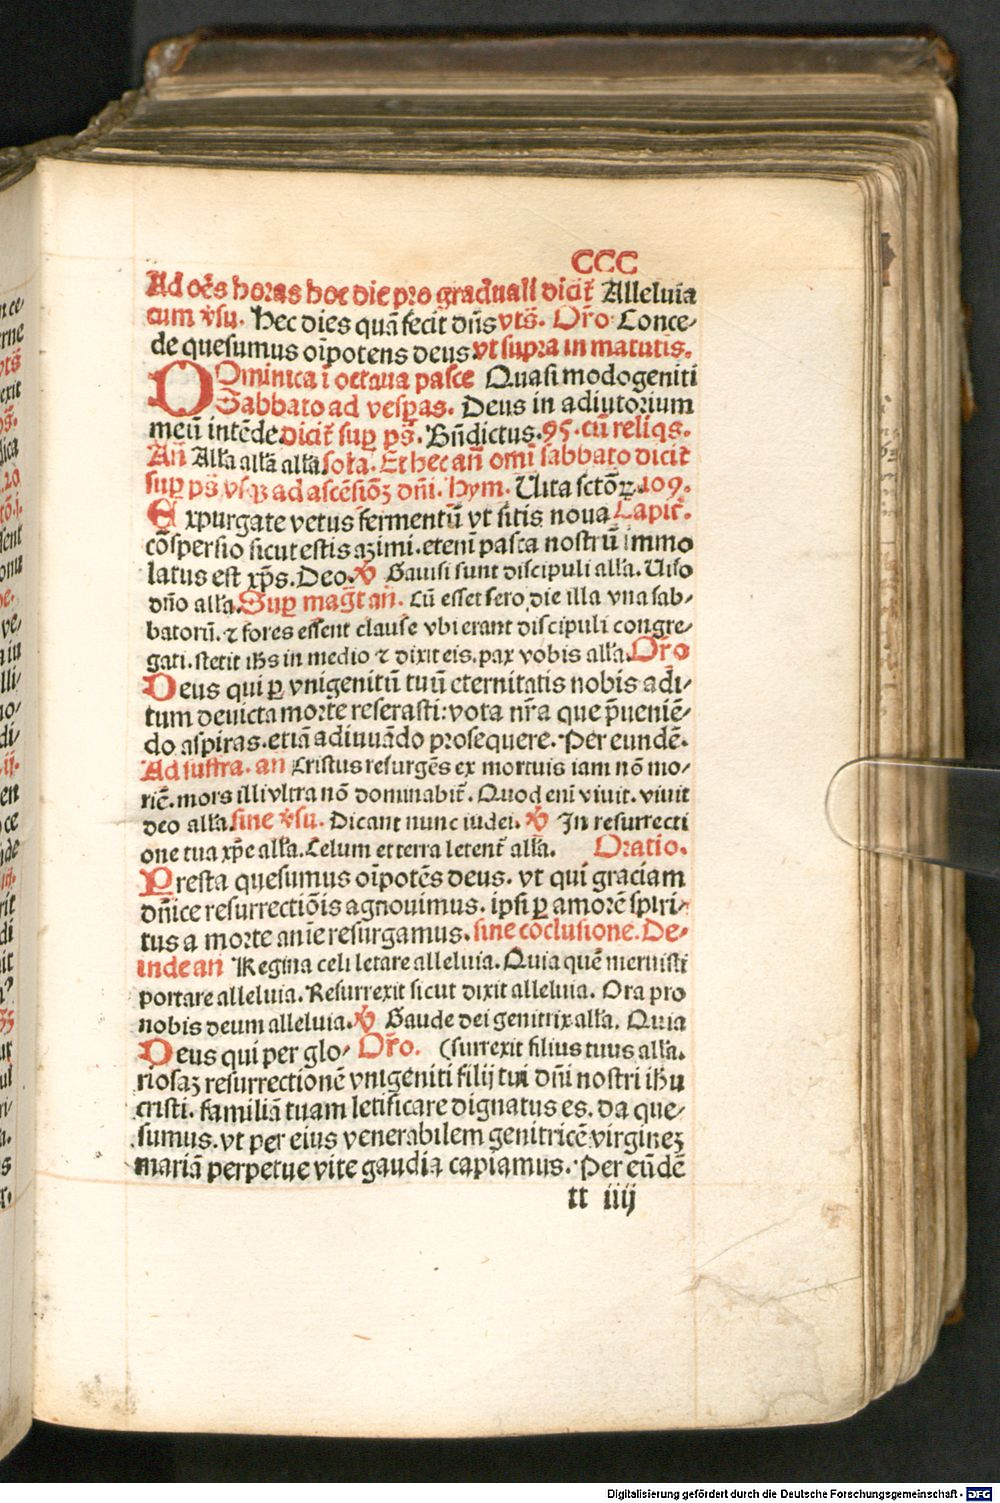 CCC
Ad oēs horas hoc die pro graduali dicit̄ Alleluia
cum v̄su. Hec dies quā fecit dn̄s vts̄. Or̄o. Conce⸗
de quesumus oīpotens deus. vt supra in matutis.
DOminica ī octaua pasce Quasi modogeniti
Sabbato ad vesꝑas. Deus in adiutorium
meū intēde. dicit̄ suꝑ ps̄. Bn̄dictus. 95. cū reliqs.
An̄ All'a all'a all'a sola. Et hec an̄ omī sabbato dicit̄
suꝑ ps̄ vsqꝫ ad ascēsiōꝫ dn̄i. Hym. Uita sctōꝝ. 109.
Expurgate vetus fermentū vt sitis noua Capit̄.
cōspersio sicut estis azimi. etenī pasca nostrū immo
latus est xp̄s. Deo. ℣ Gauisi sunt discipuli all'a. Uiso
dn̄o all'a. Suꝑ mag̅t an̄. Cū esset sero die illa vna sab⸗
batorū. ⁊ fores essent clause vbi erant discipuli congre⸗
gati. stetit ih̄s in medio ⁊ dixit eis. pax vobis all'a. Or̄o
Deus qui ꝑ vnigenitū tuū eternitatis nobis adi⸗
tum deuicta morte reserasti: vota nr̄a que p̄ueniē⸗
do aspiras. etiā adiuuādo prosequere. Per eundē.
Ad suffra. an Cristus resurgēs ex mortuis iam nō mo⸗
rit̄. mors illi vltra nō dominabit̄. Quod enī viuit. viuit
deo all'a sine v̄su. Dicant nunc iudei. ℣ In resurrecti
one tua xp̄e all'a. Celum et terra letent̄ all'a. Oratio.
Presta quesumus oīpotēs deus. vt qui graciam
dn̄ice resurrectiōis agnouimus. ipsi ꝑ amorē spiri⸗
tus a morte aīe resurgamus. sine cōclusione. De⸗
inde an̄ Regina celi letare alleluia. Quia quē meruisti
portare alleluia. Resurrexit sicut dixit alleluia. Ora pro
nobis deum alleluia. ℣ Gaude dei genitrix all'a. Quia
Deus qui per glo⸗ Or̄o. (surrexit filius tuus all'a.
riosaꝫ resurrectionē vnigeniti filij tui dn̄i nostri ih̄u
cristi. familiā tuam letificare dignatus es. da que⸗
sumus. vt per eius venerabilem genitricē virgineꝫ
mariā perpetue vite gaudia capiamus. Per eūdē
tt iiij
Digitalisierung gefördert durch die Deutsche Forschungsgemeinschaft - DFG